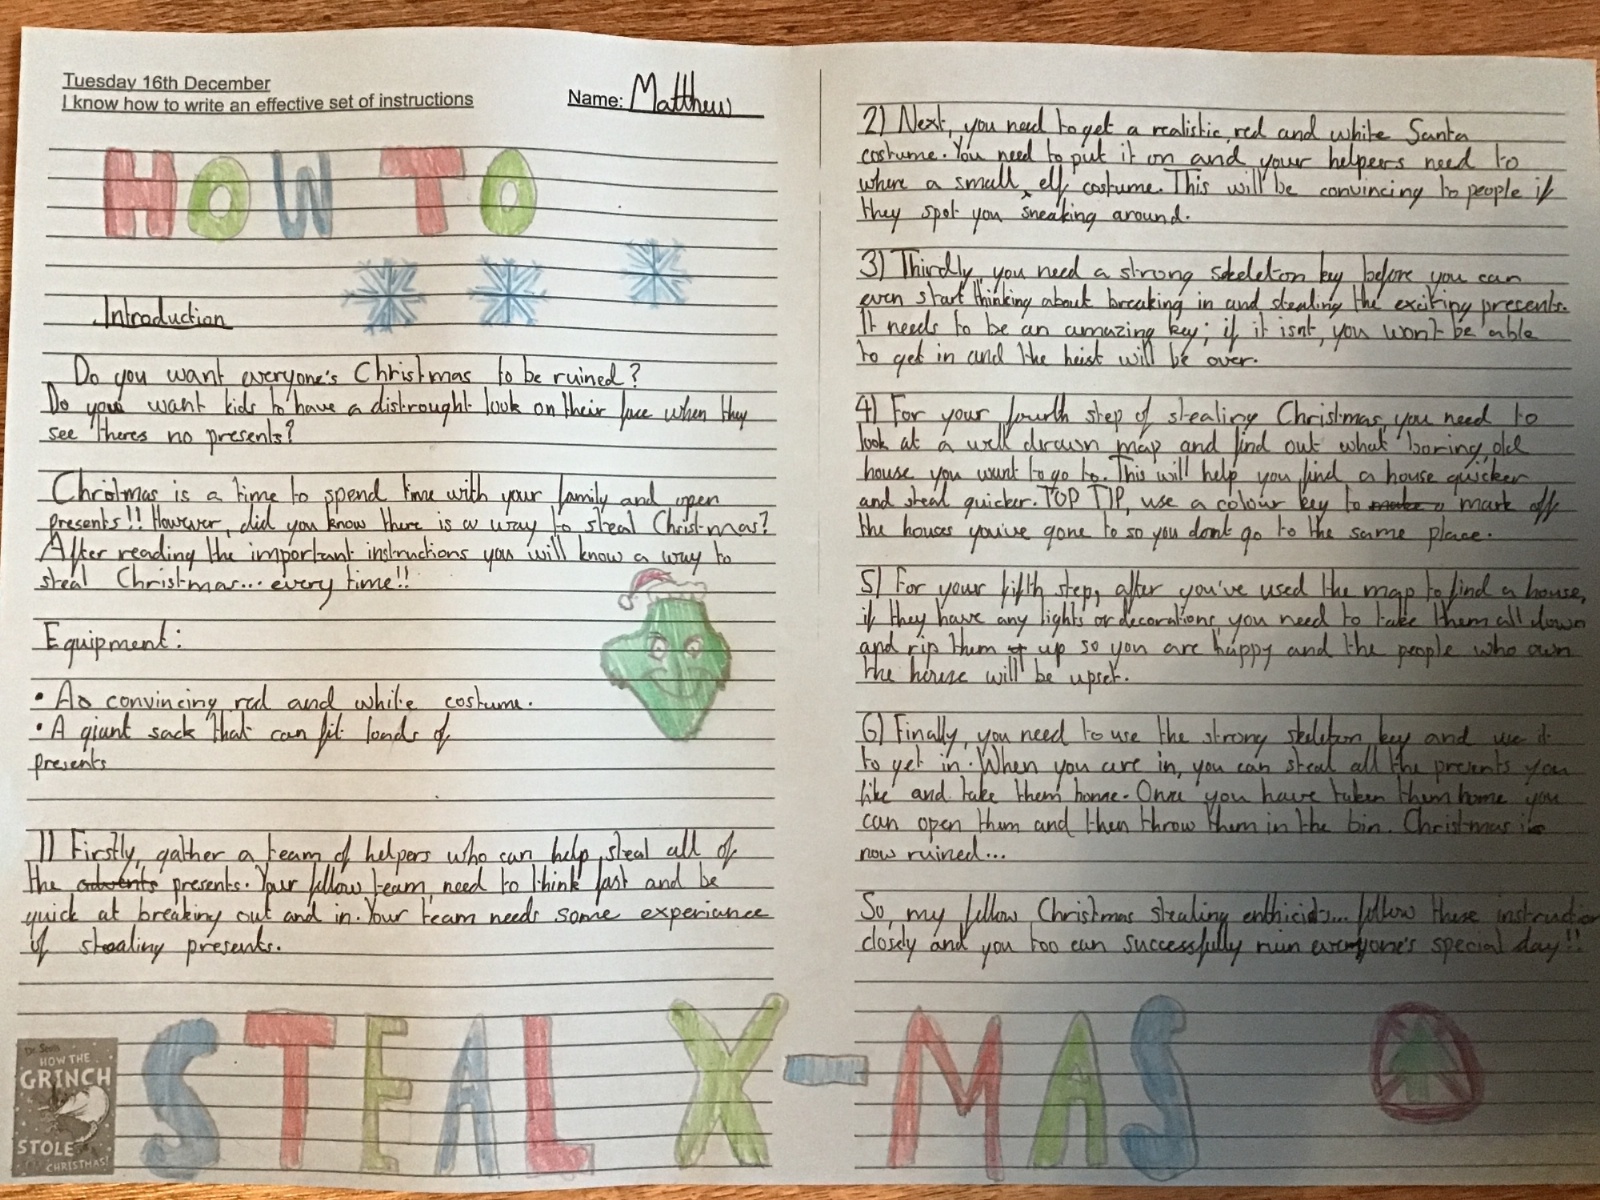 Tuesday 16th December
I know how to write an effective set of instructions
Name: Matthew
HOW TO
Introduction
Do you want everyone's Christmas to be ruined?
Do you want kids to have a distrought look on their face when they
see theres no presents?
Christmas is a time to spend time with your family and open
presents!! However, did you know there is a way to steal Christmas?
After reading the important instructions you will know a way to
steal Christmas... every time!!
Equipment:
• A convincing red and white costume.
• A giant sack that can fit loads of
presents
1) Firstly, gather a team of helpers who can help steal all of
the advents presents. Your fellow team need to think fast and be
quick at breaking out and in. Your team needs some experiance
of stealing presents.
STEAL X-MAS
Dr. Seuss
HOW THE
GRINCH
STOLE
CHRISTMAS!
2) Next, you need to get a realistic, red and white Santa
costume. You need to put it on and your helpers need to
where a small, elf costume. This will be convincing to people if
they spot you sneaking around.
3) Thirdly, you need a strong skeleton key before you can
even start thinking about breaking in and stealing the exciting presents.
It needs to be an amazing key; if it isnt, you won't be able
to get in and the heist will be over.
4) For your fourth step of stealing Christmas, you need to
look at a well drawn map and find out what boring, old
house you want to go to. This will help you find a house quicker
and steal quicker. TOP TIP, use a colour key to make a mark off
the houses you've gone to so you dont go to the same place.
5) For your fifth step, after you've used the map to find a house,
if they have any lights or decorations, you need to take them all down
and rip them up so you are happy and the people who own
the house will be upset.
6) Finally, you need to use the strong skeleton key and use it
to get in. When you are in, you can steal all the presents you
like and take them home. Once you have taken them home you
can open them and then throw them in the bin. Christmas is
now ruined...
So, my fellow Christmas stealing enthicists... follow these instruction
closely and you too can successfully ruin everyone's special day!!